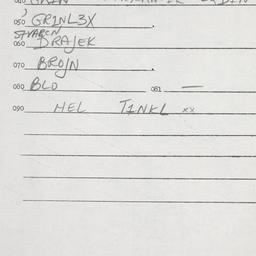 050 GRINL3X
060 DRAJEK
070 BROJN
080 BLO 081 —
090 HEL TINKL xx